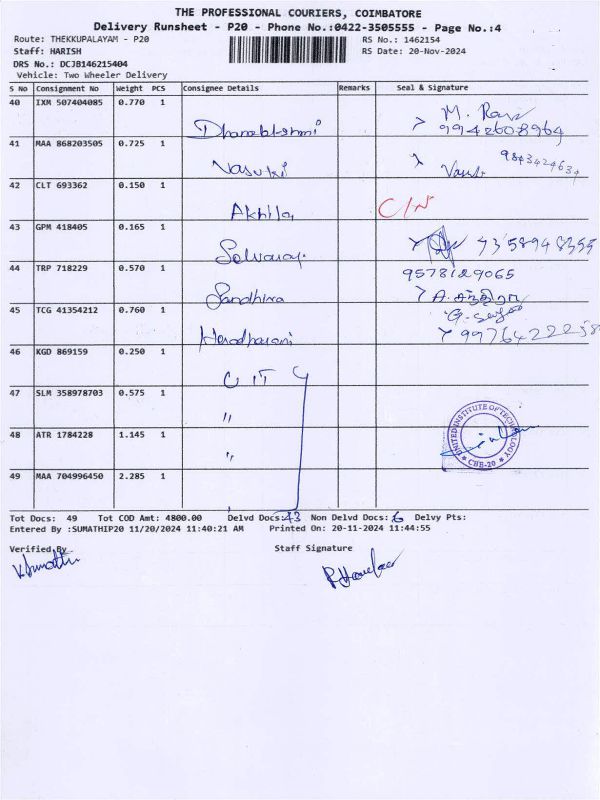 THE PROFESSIONAL COURIERS, COIMBATORE
Delivery Runsheet - P20 - Phone No.:0422-3505555 - Page No.:4
Route: THEKKUPALAYAM - P20 RS No.: 1462154
Staff: HARISH RS Date: 20-Nov-2024
DRS No.: DCJB146215404
Vehicle: Two Wheeler Delivery
S No Consignment No Weight PCS Consignee Details Remarks Seal & Signature
40 IXM 507404085 0.770 1
Dhanalakshmi M. Ravi
9942608964
41 MAA 868203505 0.725 1
Vasuki Vasuki
42 CLT 693362 0.150 1
Akhila C/N
43 GPM 418405 0.165 1
Selvaraj
44 TRP 718229 0.570 1 9578129065
Sandhiya A.சந்தியா
45 TCG 41354212 0.760 1
46 KGD 869159 0.250 1
U IT
47 SLM 358978703 0.575 1
"
48 ATR 1784228 1.145 1
"
UNITED INSTITUTE OF TECHNOLOGY
CBE-20
49 MAA 704996450 2.285 1
Tot Docs: 49 Tot COD Amt: 4800.00 Delvd Docs:43 Non Delvd Docs:6 Delvy Pts:
Entered By :SUMATHIP20 11/20/2024 11:40:21 AM Printed On: 20-11-2024 11:44:55
Verified By Staff Signature